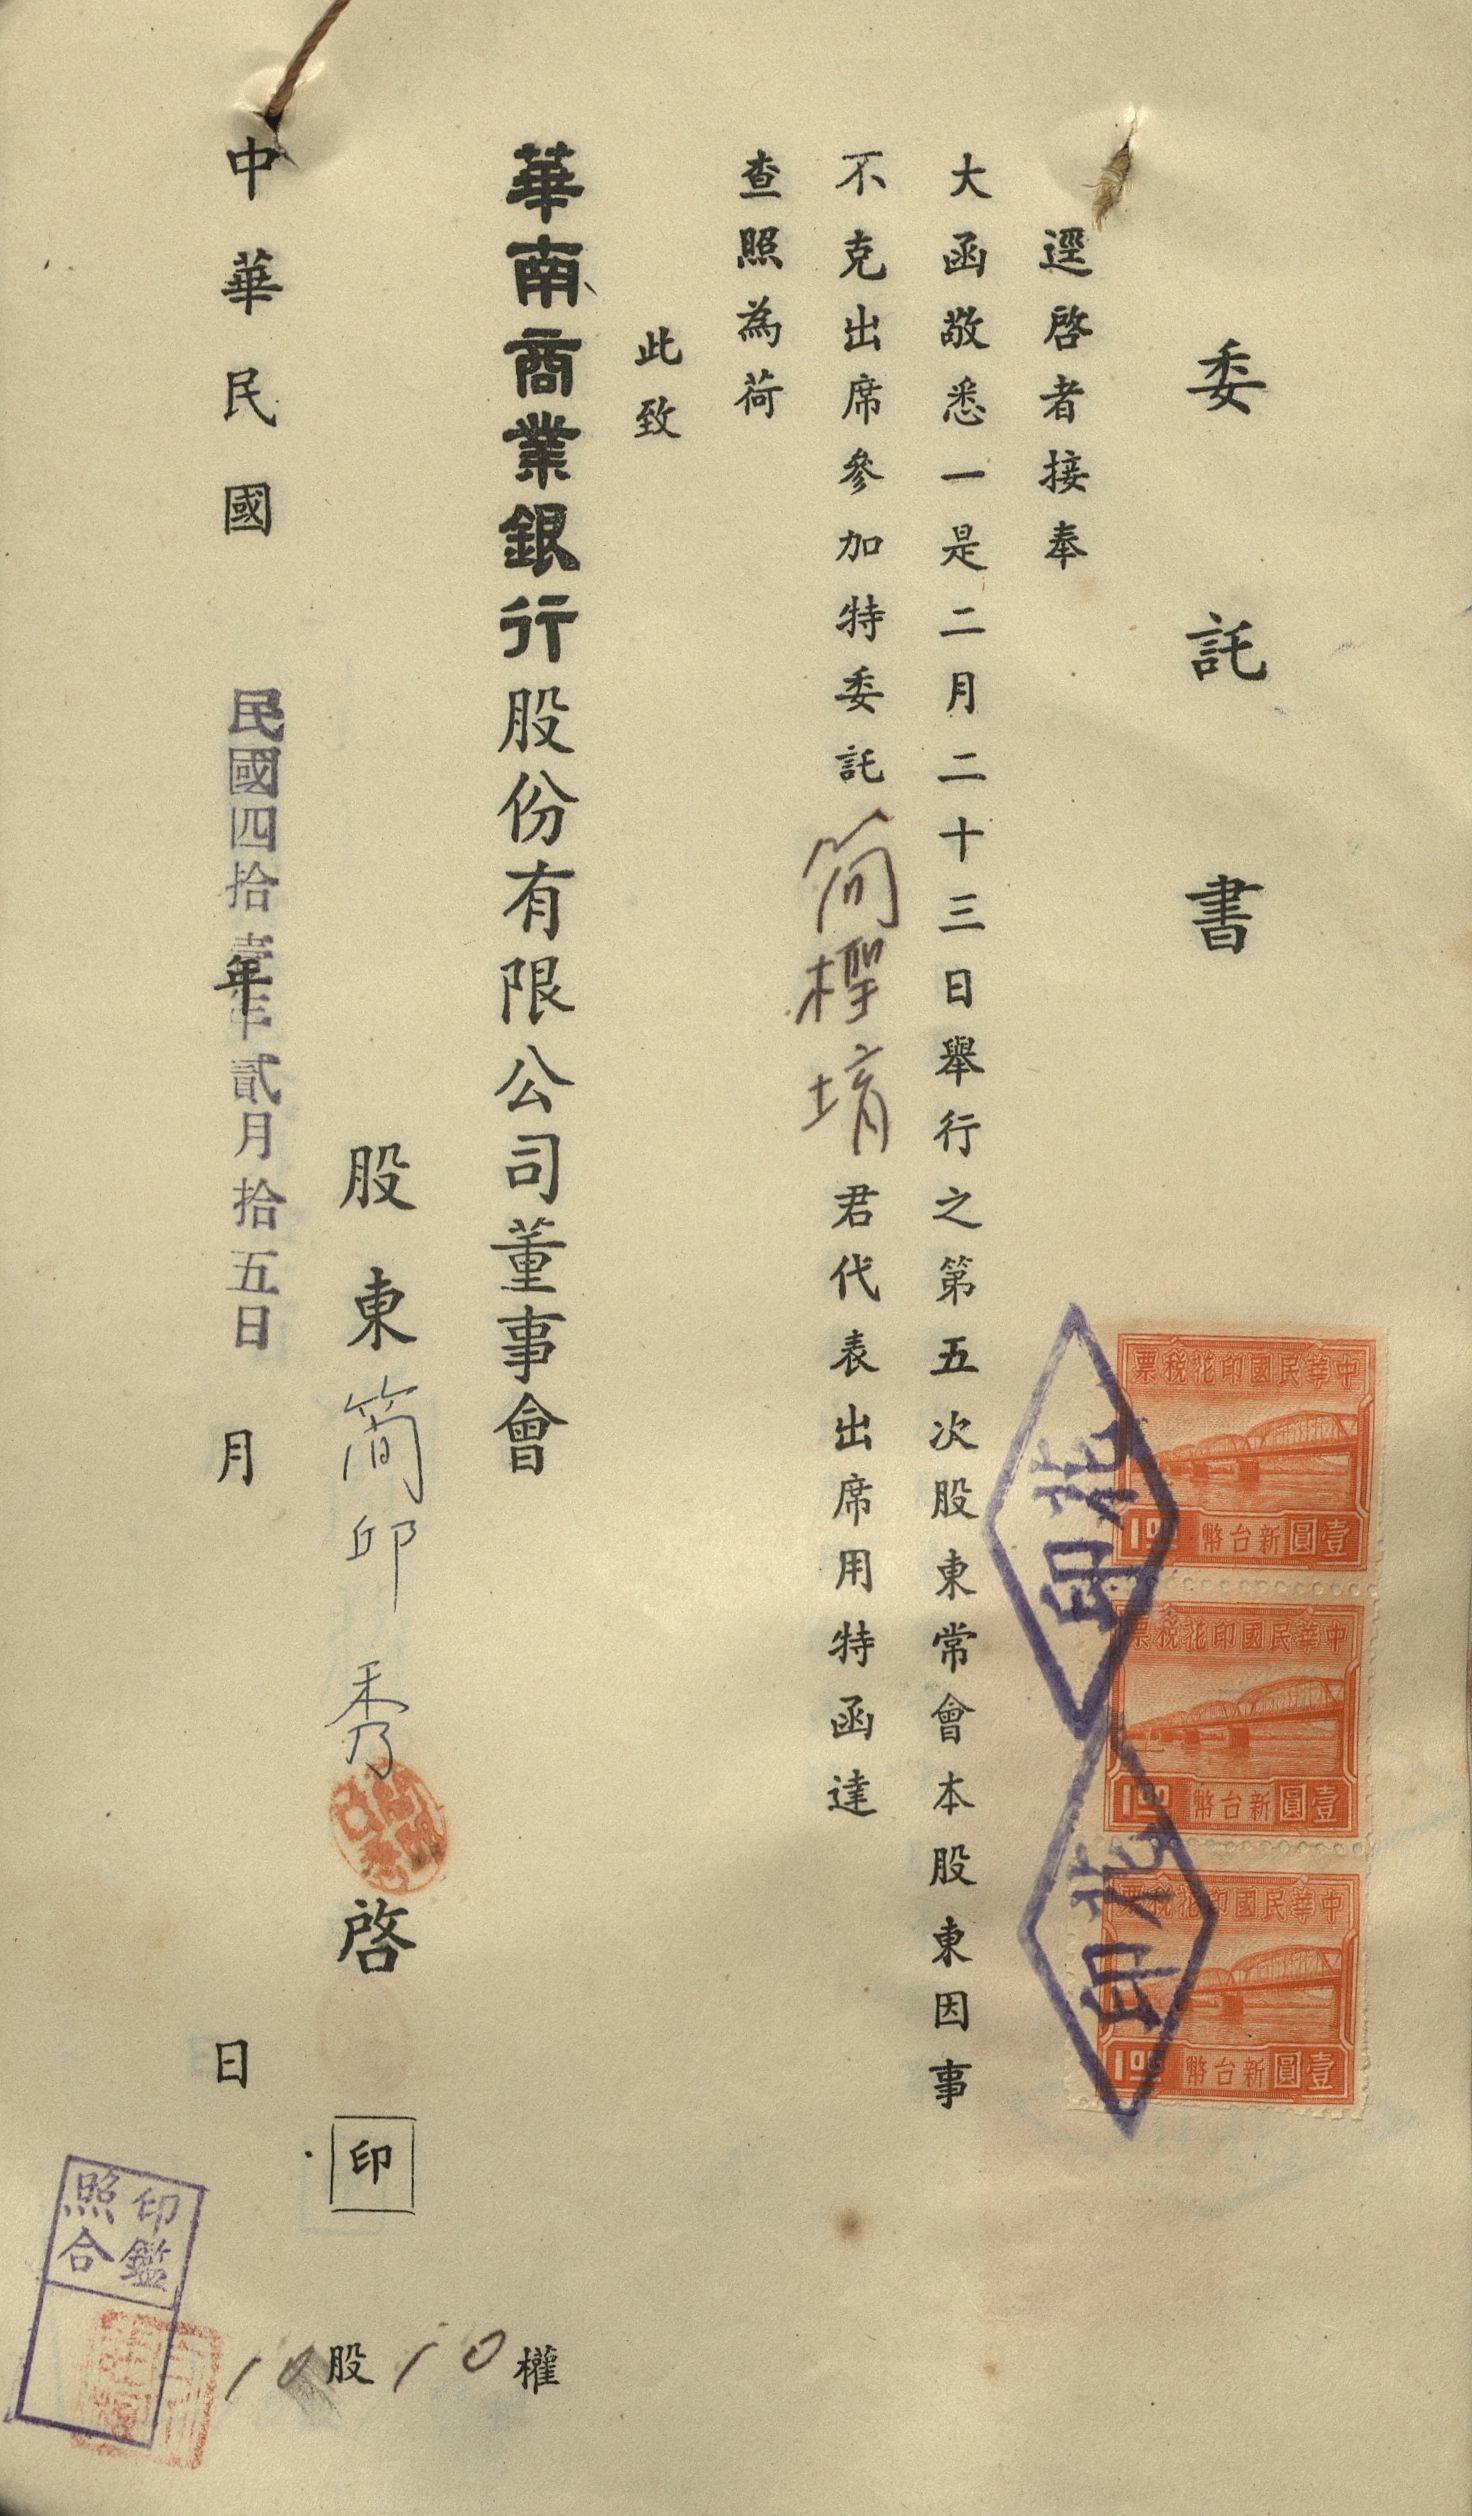 委託書
逕啓者接奉
大函敬悉一是二月二十三日舉行之第五次股東常會本股東因事
不克出席參加特委託簡檉堉君代表出席用特函達
查照為荷
此致
華南商業銀行股份有限公司董事會
股東簡卯秀啓
印
中華民國 年 月 日
民國四拾壹年貳月拾五日
10股10權
印鑑
照合
中華民國印花稅票
1.00
新台幣
壹圓
中華民國印花稅票
1.00
新台幣
壹圓
中華民國印花稅票
1.00
新台幣
壹圓